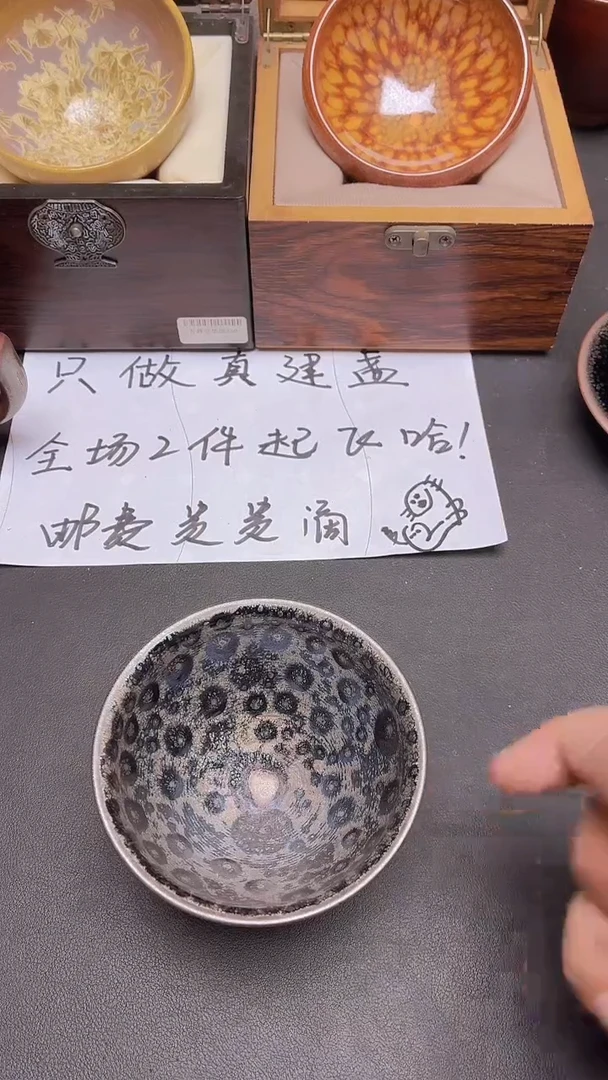 只做真建盏
全场2件起飞哈!
邮费羙羙滴